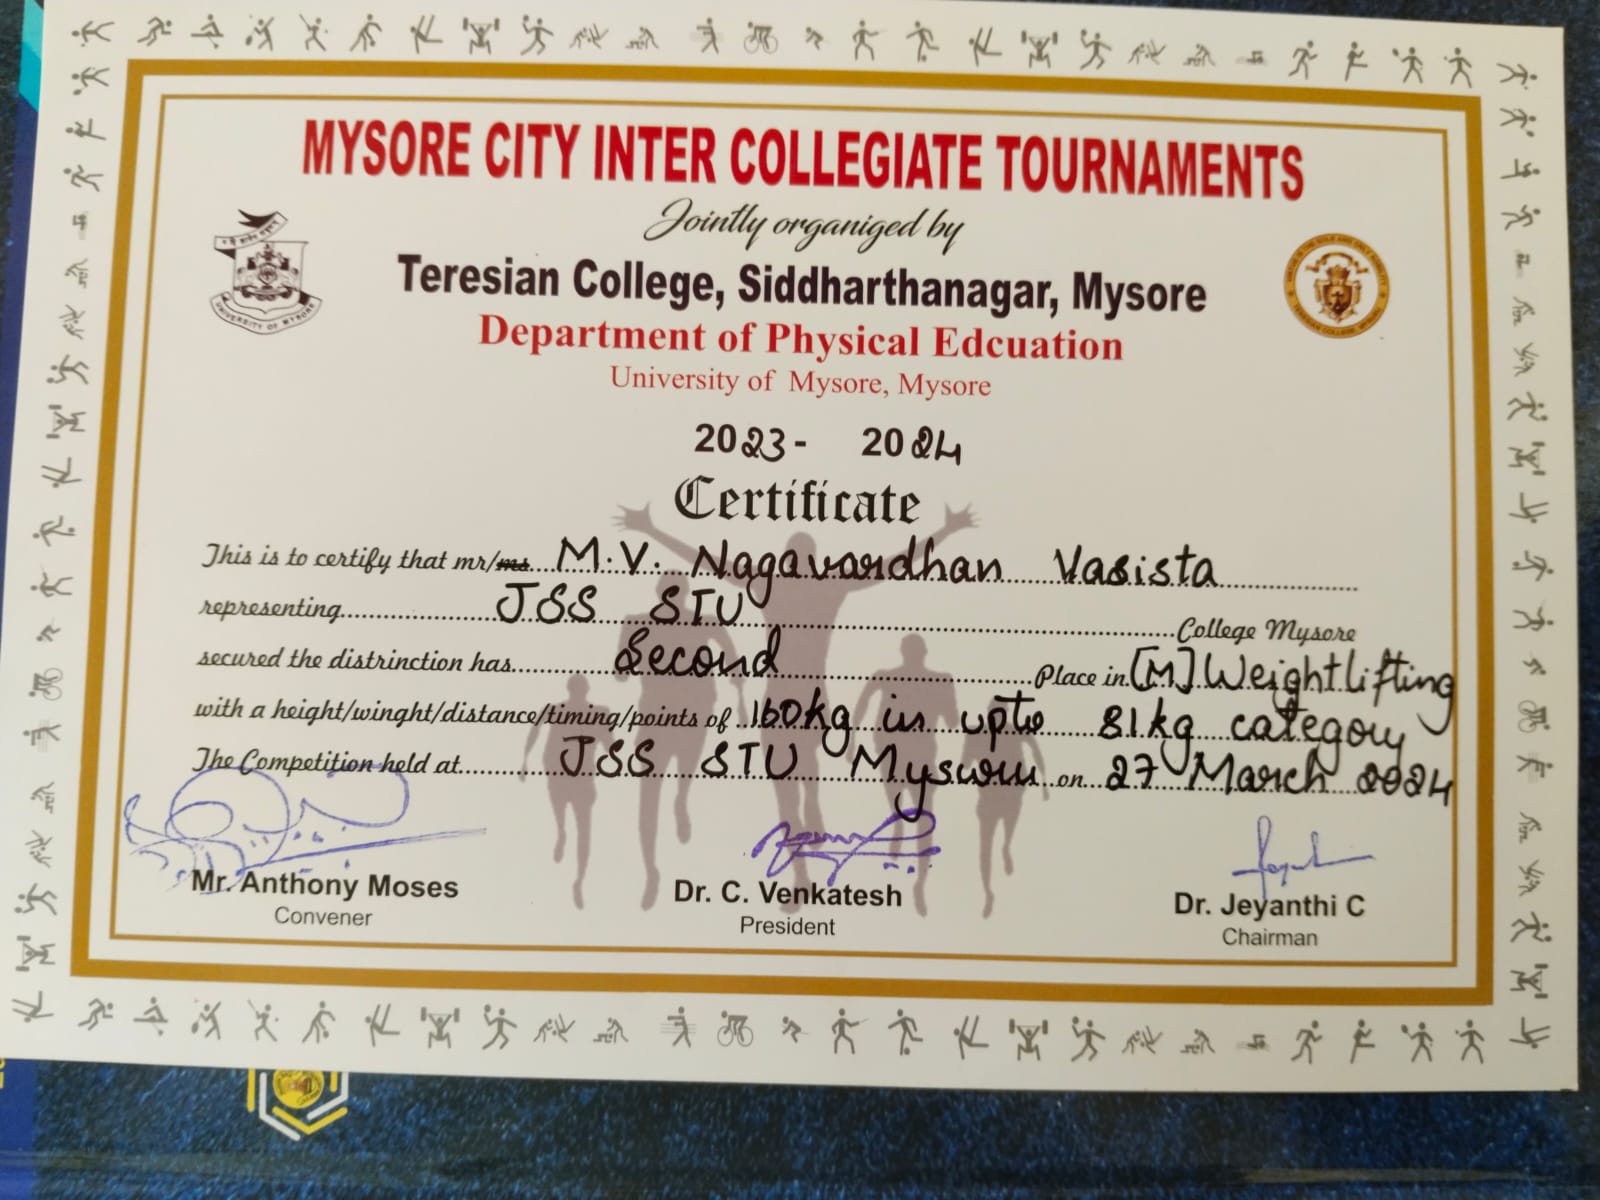 MYSORE CITY INTER COLLEGIATE TOURNAMENTS
Jointly organiged by
Teresian College, Siddharthanagar, Mysore
Department of Physical Edcuation
University of Mysore, Mysore
UNIVERSITY OF MYSORE
TERESIAN COLLEGE, MYSORE
2023- 2024
Certificate
This is to certify that mr/ms M.V. Nagavardhan Vasista
representing JSS STU College Mysore
secured the distrinction has Second Place in [M] Weightlifting
with a height/winght/distance/timing/points of 160kg in upto 81kg category
The Competition held at JSS STU Mysuru on 27 March 2024
Mr. Anthony Moses Dr. C. Venkatesh Dr. Jeyanthi C
Convener President Chairman